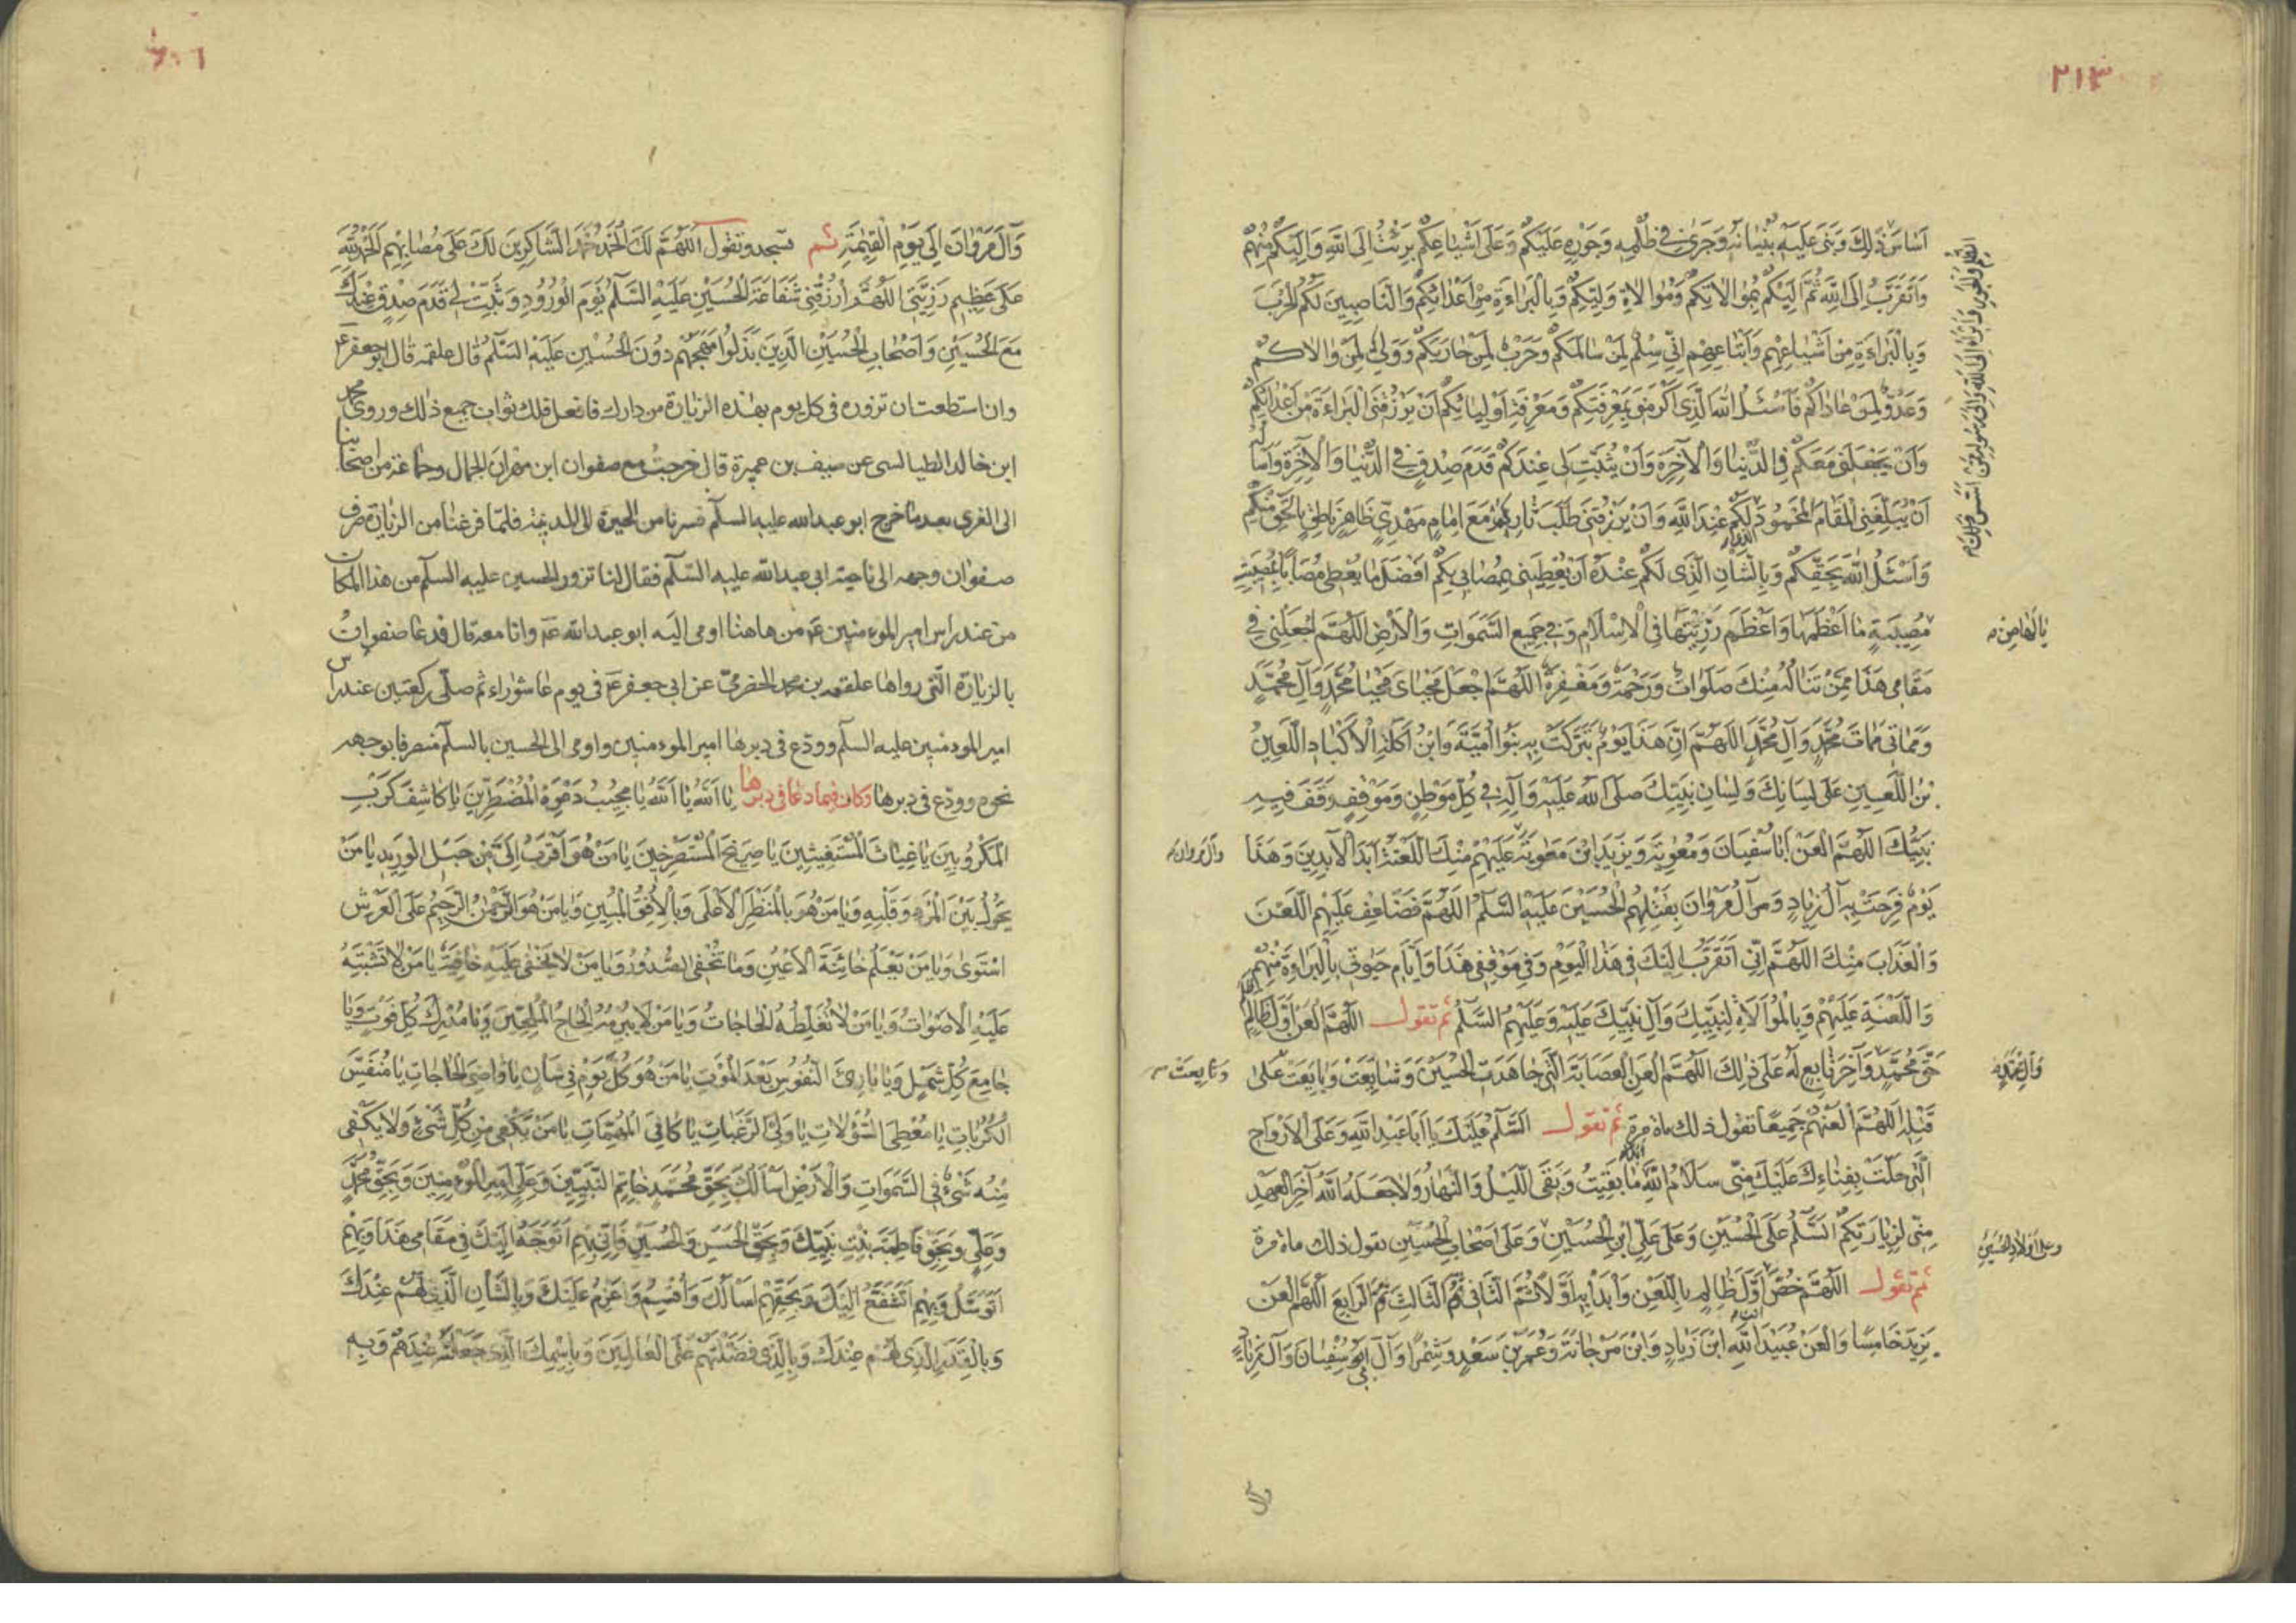 ٢١٣
اَسَاسَ ذٰلِكَ وَبَنىٰ عَلَيْهِ بُنْيَانَهُ وَجَرىٰ فِي ظُلْمِهِ وَجَوْرِهِ عَلَيْكُمْ وَعَلىٰ اَشْيَاعِكُمْ بَرِئْتُ اِلَى اللهِ وَاِلَيْكُمْ مِنْهُمْ
وَاَتَقَرَّبُ اِلَى اللهِ ثُمَّ اِلَيْكُمْ بِمُوَالَاتِكُمْ وَمُوَالَاةِ وَلِيِّكُمْ وَبِالْبَرَاءَةِ مِنْ اَعْدَائِكُمْ وَالنَّاصِبِينَ لَكُمُ الْحَرْبَ
وَبِالْبَرَاءَةِ مِنْ اَشْيَاعِهِمْ وَاَتْبَاعِهِمْ اِنِّي سِلْمٌ لِمَنْ سَالَمَكُمْ وَحَرْبٌ لِمَنْ حَارَبَكُمْ وَوَلِيٌّ لِمَنْ وَالَاكُمْ
وَعَدُوٌّ لِمَنْ عَادَاكُمْ فَاَسْئَلُ اللهَ الَّذِي اَكْرَمَنِي بِمَعْرِفَتِكُمْ وَمَعْرِفَةِ اَوْلِيَائِكُمْ اَنْ يَرْزُقَنِي الْبَرَاءَةَ مِنْ اَعْدَائِكُمْ
وَاَنْ يَجْعَلَنِي مَعَكُمْ فِي الدُّنْيَا وَالْآخِرَةِ وَاَنْ يُثَبِّتَ لِي عِنْدَكُمْ قَدَمَ صِدْقٍ فِي الدُّنْيَا وَالْآخِرَةِ وَاَسْأَلُهُ
اَنْ يُبَلِّغَنِي الْمَقَامَ الْمَحْمُودَ لَكُمْ عِنْدَ اللهِ وَاَنْ يَرْزُقَنِي طَلَبَ ثَارِكُمْ مَعَ اِمَامٍ مَهْدِيٍّ ظَاهِرٍ نَاطِقٍ بِالْحَقِّ مِنْكُمْ
وَاَسْئَلُ اللهَ بِحَقِّكُمْ وَبِالشَّأْنِ الَّذِي لَكُمْ عِنْدَهُ اَنْ يُعْطِيَنِي بِمُصَابِي بِكُمْ اَفْضَلَ مَا يُعْطِي مُصَابًا بِمُصِيبَتِهِ
مُصِيبَةٍ مَا اَعْظَمَهَا وَاَعْظَمَ رَزِيَّتَهَا فِي الْاِسْلَامِ وَفِي جَمِيعِ السَّمٰوَاتِ وَالْاَرْضِ اَللّٰهُمَّ اجْعَلْنِي فِي
يا لها من
مَقَامِي هٰذَا مِمَّنْ تَنَالُهُ مِنْكَ صَلَوَاتٌ وَرَحْمَةٌ وَمَغْفِرَةٌ اَللّٰهُمَّ اجْعَلْ مَحْيَايَ مَحْيَا مُحَمَّدٍ وَآلِ مُحَمَّدٍ
وَمَمَاتِي مَمَاتَ مُحَمَّدٍ وَآلِ مُحَمَّدٍ اَللّٰهُمَّ اِنَّ هٰذَا يَوْمٌ تَبَرَّكَتْ بِهِ بَنُوا اُمَيَّةَ وَابْنُ آكِلَةِ الْاَكْبَادِ اللَّعِينُ
بْنُ اللَّعِينِ عَلىٰ لِسَانِكَ وَلِسَانِ نَبِيِّكَ صَلَّى اللهُ عَلَيْهِ وَآلِهِ فِي كُلِّ مَوْطِنٍ وَمَوْقِفٍ وَقَفَ فِيهِ
نَبِيُّكَ اَللّٰهُمَّ الْعَنْ اَبَا سُفْيَانَ وَمُعٰوِيَةَ وَيَزِيدَ ابْنَ مُعٰوِيَةَ عَلَيْهِمْ مِنْكَ اللَّعْنَةُ اَبَدَ الْآبِدِينَ وَهٰذَا
وآل مروان
يَوْمٌ فَرِحَتْ بِهِ آلُ زِيَادٍ وَآلُ مَرْوَانَ بِقَتْلِهِمُ الْحُسَيْنَ عَلَيْهِ السَّلٰمُ اَللّٰهُمَّ فَضَاعِفْ عَلَيْهِمُ اللَّعْنَ
وَالْعَذَابَ مِنْكَ اَللّٰهُمَّ اِنِّي اَتَقَرَّبُ اِلَيْكَ فِي هٰذَا الْيَوْمِ وَفِي مَوْقِفِي هٰذَا وَاَيَّامِ حَيٰوتِي بِالْبَرَاءَةِ مِنْهُمْ
وَاللَّعْنَةِ عَلَيْهِمْ وَبِالْمُوَالَاةِ لِنَبِيِّكَ وَآلِ نَبِيِّكَ عَلَيْهِ وَعَلَيْهِمُ السَّلٰمُ ثم تقول اَللّٰهُمَّ الْعَنْ اَوَّلَ ظَالِمٍ
حَقَّ مُحَمَّدٍ وَآخِرَ تَابِعٍ لَهُ عَلىٰ ذٰلِكَ اَللّٰهُمَّ الْعَنِ الْعِصَابَةَ الَّتِي جَاهَدَتِ الْحُسَيْنَ وَشَايَعَتْ وَبَايَعَتْ عَلىٰ
وآل محمد
وتابعت
قَتْلِهِ اَللّٰهُمَّ الْعَنْهُمْ جَمِيعًا تقول ذلك مائة مرة ثم تقول اَلسَّلٰمُ عَلَيْكَ يَا اَبَا عَبْدِ اللهِ وَعَلَى الْاَرْوَاحِ
الَّتِي حَلَّتْ بِفِنَاءِكَ عَلَيْكَ مِنِّي سَلَامُ اللهِ مَا بَقِيتُ وَبَقِيَ اللَّيْلُ وَالنَّهَارُ وَلَا جَعَلَهُ اللهُ آخِرَ الْعَهْدِ
مِنِّي لِزِيَارَتِكُمْ اَلسَّلٰمُ عَلَى الْحُسَيْنِ وَعَلىٰ عَلِيِّ ابْنِ الْحُسَيْنِ وَعَلىٰ اَصْحَابِ الْحُسَيْنِ تقول ذلك مائة مرة
وعلى اولاد الحسين
ثم تقول اَللّٰهُمَّ خُصَّ اَوَّلَ ظَالِمٍ بِاللَّعْنِ وَابْدَأْ بِهِ اَوَّلًا ثُمَّ الثَّانِي ثُمَّ الثَّالِثَ ثُمَّ الرَّابِعَ اَللّٰهُمَّ الْعَنْ
يَزِيدَ خَامِسًا وَالْعَنْ عُبَيْدَ اللهِ ابْنَ زِيَادٍ وَابْنَ مَرْجَانَةَ وَعُمَرَ بْنَ سَعْدٍ وَشِمْرًا وَآلَ اَبِي سُفْيَانَ وَآلَ زِيَادٍ
وآل
وَآلَ مَرْوَانَ اِلىٰ يَوْمِ الْقِيٰمَةِ ثم تسجد وتقول اَللّٰهُمَّ لَكَ الْحَمْدُ حَمْدَ الشَّاكِرِينَ لَكَ عَلىٰ مُصَابِهِمْ اَلْحَمْدُ لِلّٰهِ
عَلىٰ عَظِيمِ رَزِيَّتِي اَللّٰهُمَّ ارْزُقْنِي شَفَاعَةَ الْحُسَيْنِ عَلَيْهِ السَّلٰمُ يَوْمَ الْوُرُودِ وَثَبِّتْ لِي قَدَمَ صِدْقٍ عِنْدَكَ
مَعَ الْحُسَيْنِ وَاَصْحَابِ الْحُسَيْنِ الَّذِينَ بَذَلُوا مُهَجَهُمْ دُونَ الْحُسَيْنِ عَلَيْهِ السَّلٰمُ قال علقمه قال ابو جعفر ع
وان استطعت ان تزوره في كل يوم بهذه الزيارة من دارك فافعل فلك ثواب جميع ذلك وروى محمد
ابن خالد الطيالسى عن سيف بن عميرة قال خرجت مع صفوان ابن مهران الجمال وجماعة من اصحابنا
الى الغرى بعد ما خرج ابو عبد الله عليه السلم فسرنا من الحيرة الى المدينة فلما فرغنا من الزيارة صرف
صفوان وجهه الى ناحية ابى عبد الله عليه السلم فقال لنا تزور الحسين عليه السلم من هذا المكان
من عند راس امير المومنين ع من هاهنا اومى اليه ابو عبد الله ع وانا معه قال فدعا صفوان
بالزيارة التي رواها علقمه بن محمد الحضرمي عن ابي جعفر ع في يوم عاشوراء ثم صلى ركعتين عند راس
امير المومنين عليه السلم وودع في دبرها امير المومنين واومى الى الحسين بالسلم منصرفا بوجهه
نحوه وودع في دبرها وكان فيما دعا في دبرها يَا اَللهُ يَا اَللهُ يَا مُجِيبَ دَعْوَةِ الْمُضْطَرِّينَ يَا كَاشِفَ كَرْبِ
الْمَكْرُوبِينَ يَا غِيَاثَ الْمُسْتَغِيثِينَ يَا صَرِيخَ الْمُسْتَصْرِخِينَ يَا مَنْ هُوَ اَقْرَبُ اِلَيَّ مِنْ حَبْلِ الْوَرِيدِ يَا مَنْ
يَحُولُ بَيْنَ الْمَرْءِ وَقَلْبِهِ وَيَا مَنْ هُوَ بِالْمَنْظَرِ الْاَعْلىٰ وَبِالْاُفُقِ الْمُبِينِ وَيَا مَنْ هُوَ الرَّحْمٰنُ الرَّحِيمُ عَلَى الْعَرْشِ
اسْتَوىٰ وَيَا مَنْ يَعْلَمُ خَائِنَةَ الْاَعْيُنِ وَمَا تُخْفِي الصُّدُورُ وَيَا مَنْ لَا يَخْفىٰ عَلَيْهِ خَافِيَةٌ يَا مَنْ لَا تَشْتَبِهُ
عَلَيْهِ الْاَصْوَاتُ وَيَا مَنْ لَا تُغَلِّطُهُ الْحَاجَاتُ وَيَا مَنْ لَا يُبْرِمُهُ اِلْحَاحُ الْمُلِحِّينَ وَيَا مُدْرِكَ كُلِّ فَوْتٍ وَيَا
جَامِعَ كُلِّ شَمْلٍ وَيَا بَارِئَ النُّفُوسِ بَعْدَ الْمَوْتِ يَا مَنْ هُوَ كُلَّ يَوْمٍ فِي شَأْنٍ يَا قَاضِيَ الْحَاجَاتِ يَا مُنَفِّسَ
الْكُرُبَاتِ يَا مُعْطِيَ السُّؤُلَاتِ يَا وَلِيَّ الرَّغَبَاتِ يَا كَافِيَ الْمُهِمَّاتِ يَا مَنْ يَكْفِي مِنْ كُلِّ شَيْءٍ وَلَا يَكْفِي
مِنْهُ شَيْءٌ فِي السَّمٰوَاتِ وَالْاَرْضِ اَسْأَلُكَ بِحَقِّ مُحَمَّدٍ خَاتِمِ النَّبِيِّينَ وَعَلِيٍّ اَمِيرِ الْمُؤْمِنِينَ وَبِحَقِّ مُحَمَّدٍ
وَعَلِيٍّ وَبِحَقِّ فَاطِمَةَ بِنْتِ نَبِيِّكَ وَبِحَقِّ الْحَسَنِ وَالْحُسَيْنِ فَاِنِّي بِهِمْ اَتَوَجَّهُ اِلَيْكَ فِي مَقَامِي هٰذَا وَبِهِمْ
اَتَوَسَّلُ وَبِهِمْ اَتَشَفَّعُ اِلَيْكَ وَبِحَقِّهِمْ اَسْأَلُكَ وَاُقْسِمُ وَاَعْزِمُ عَلَيْكَ وَبِالشَّأْنِ الَّذِي لَهُمْ عِنْدَكَ
وَبِالْقَدْرِ الَّذِي لَهُمْ عِنْدَكَ وَبِالَّذِي فَضَّلْتَهُمْ عَلَى الْعَالَمِينَ وَبِاسْمِكَ الَّذِي جَعَلْتَهُ عِنْدَهُمْ وَبِهِ